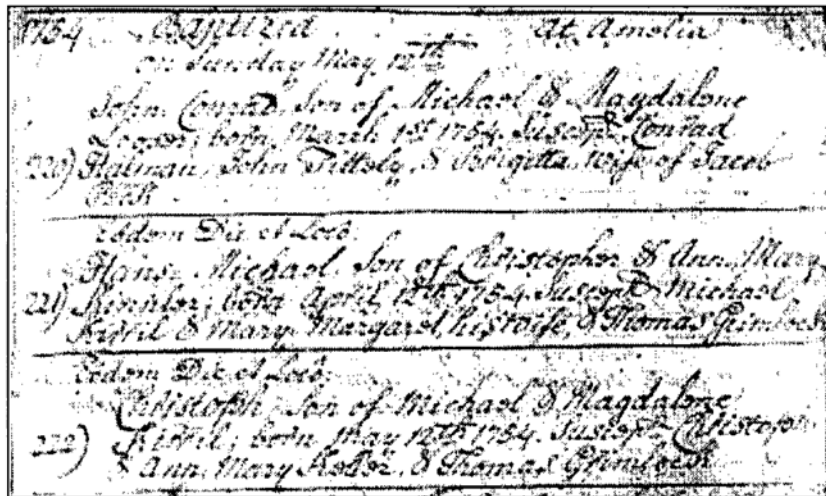 1754 Baptized at Amelia
on Sunday May 12th
John Conrad, Son of Michael & Magdalene
born March 1st 1754. Suscept. Conrad
220) John & Brigitta, wife of Jacob
eodem Die et Loco.
Hans Michael, Son of Christopher & Ann Mary
221) born April 12th 1754. Suscept. Michael
& Mary Margaret, his wife, & Thomas Grimbock
Eodem Die et Loco.
Christoph, Son of Michael & Magdalene
222) born May 12th 1754. Suscept. Christoph
& Ann Mary & Thomas Grimbock